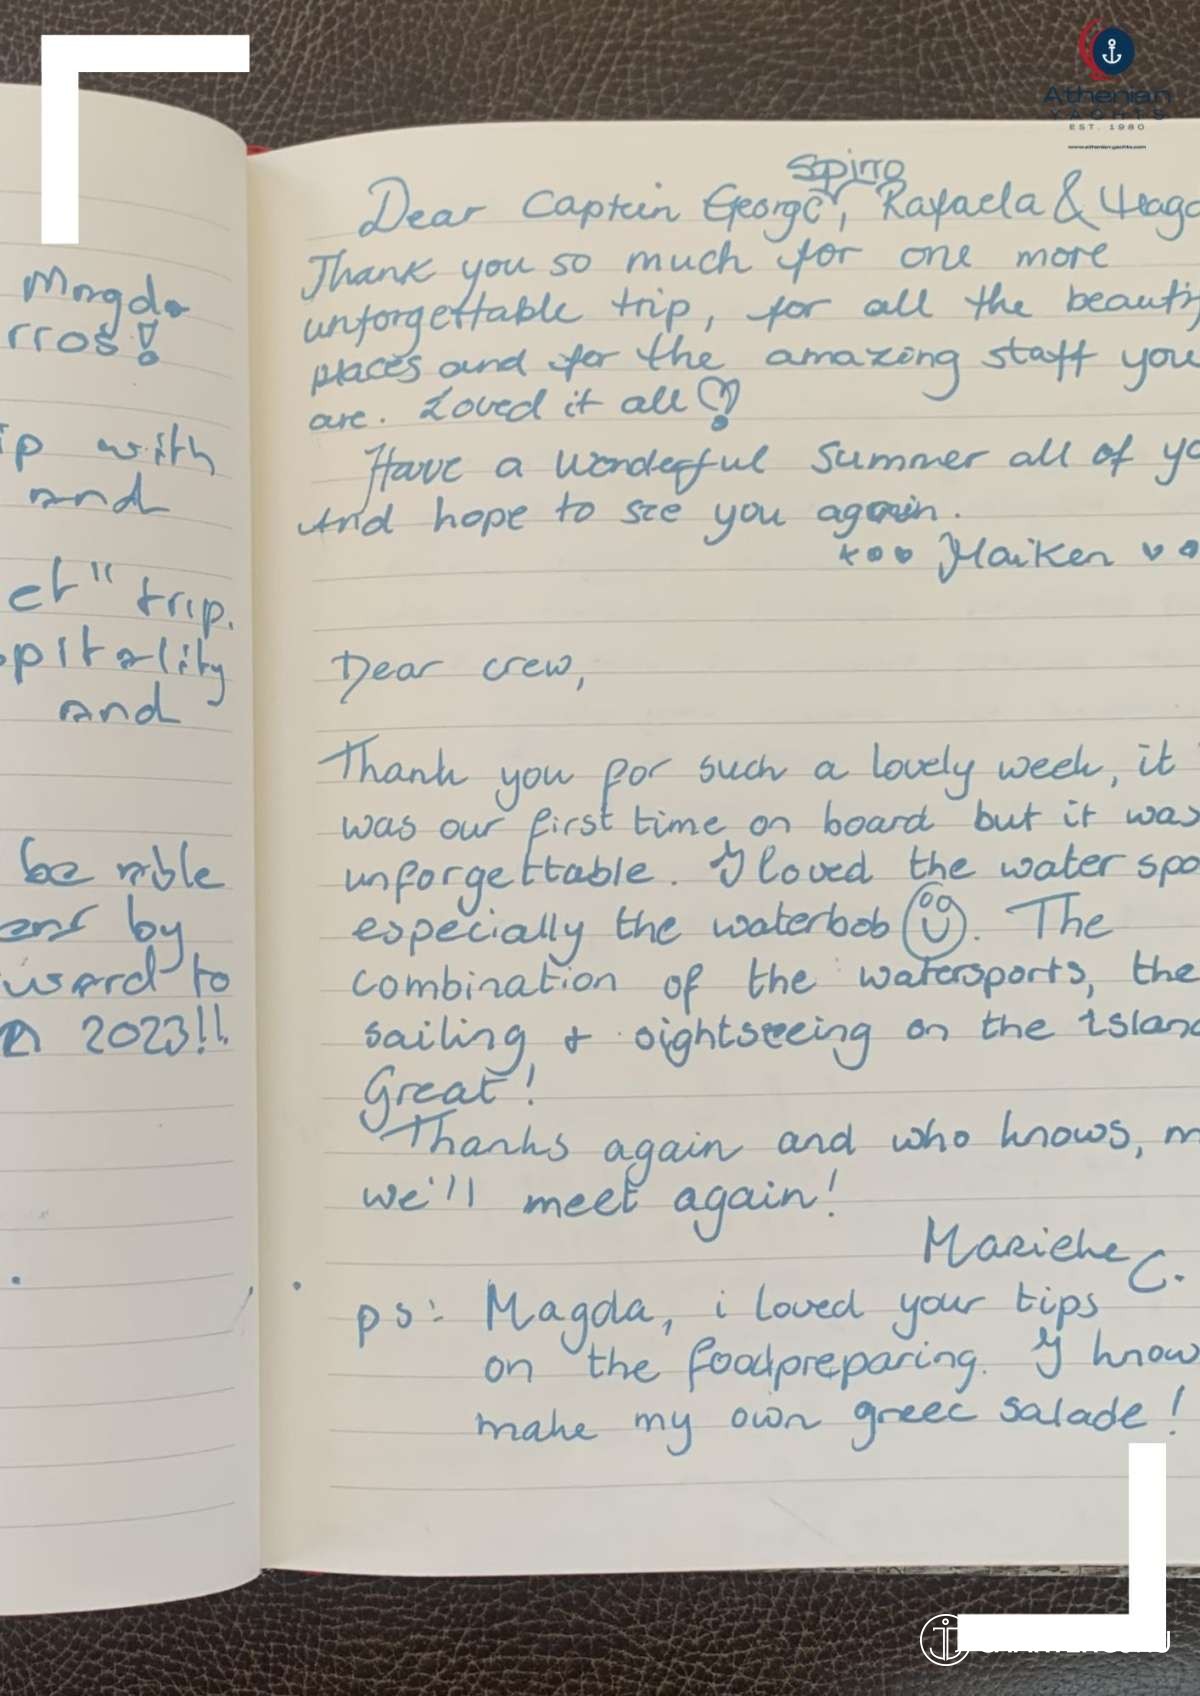 Athenian
YACHTS
EST. 1980
www.athenian.yachts.com
Magda
rros!
ip with
and
et" trip.
pitality
and
be able
by
ward to
2023!!
Spirro
Dear Captein George, Rafaela &
Thank you so much for one more
unforgettable trip, for all the beauti
places and for the amazing staff you
are. Loved it all
Have a wonderful Summer all of yo
And hope to see you again.
Maiken
Dear crew,
Thank you for such a lovely week, it
was our first time on board but it was
unforgettable. I loved the water spo
especially the waterbob. The
combination of the watersports, the
sailing + sightseeing on the islan
Great!
Thanks again and who knows, m
we'll meet again!
Marieke C.
ps: Magda, i loved your tips
on the foodpreparing. I know
make my own greec salade!